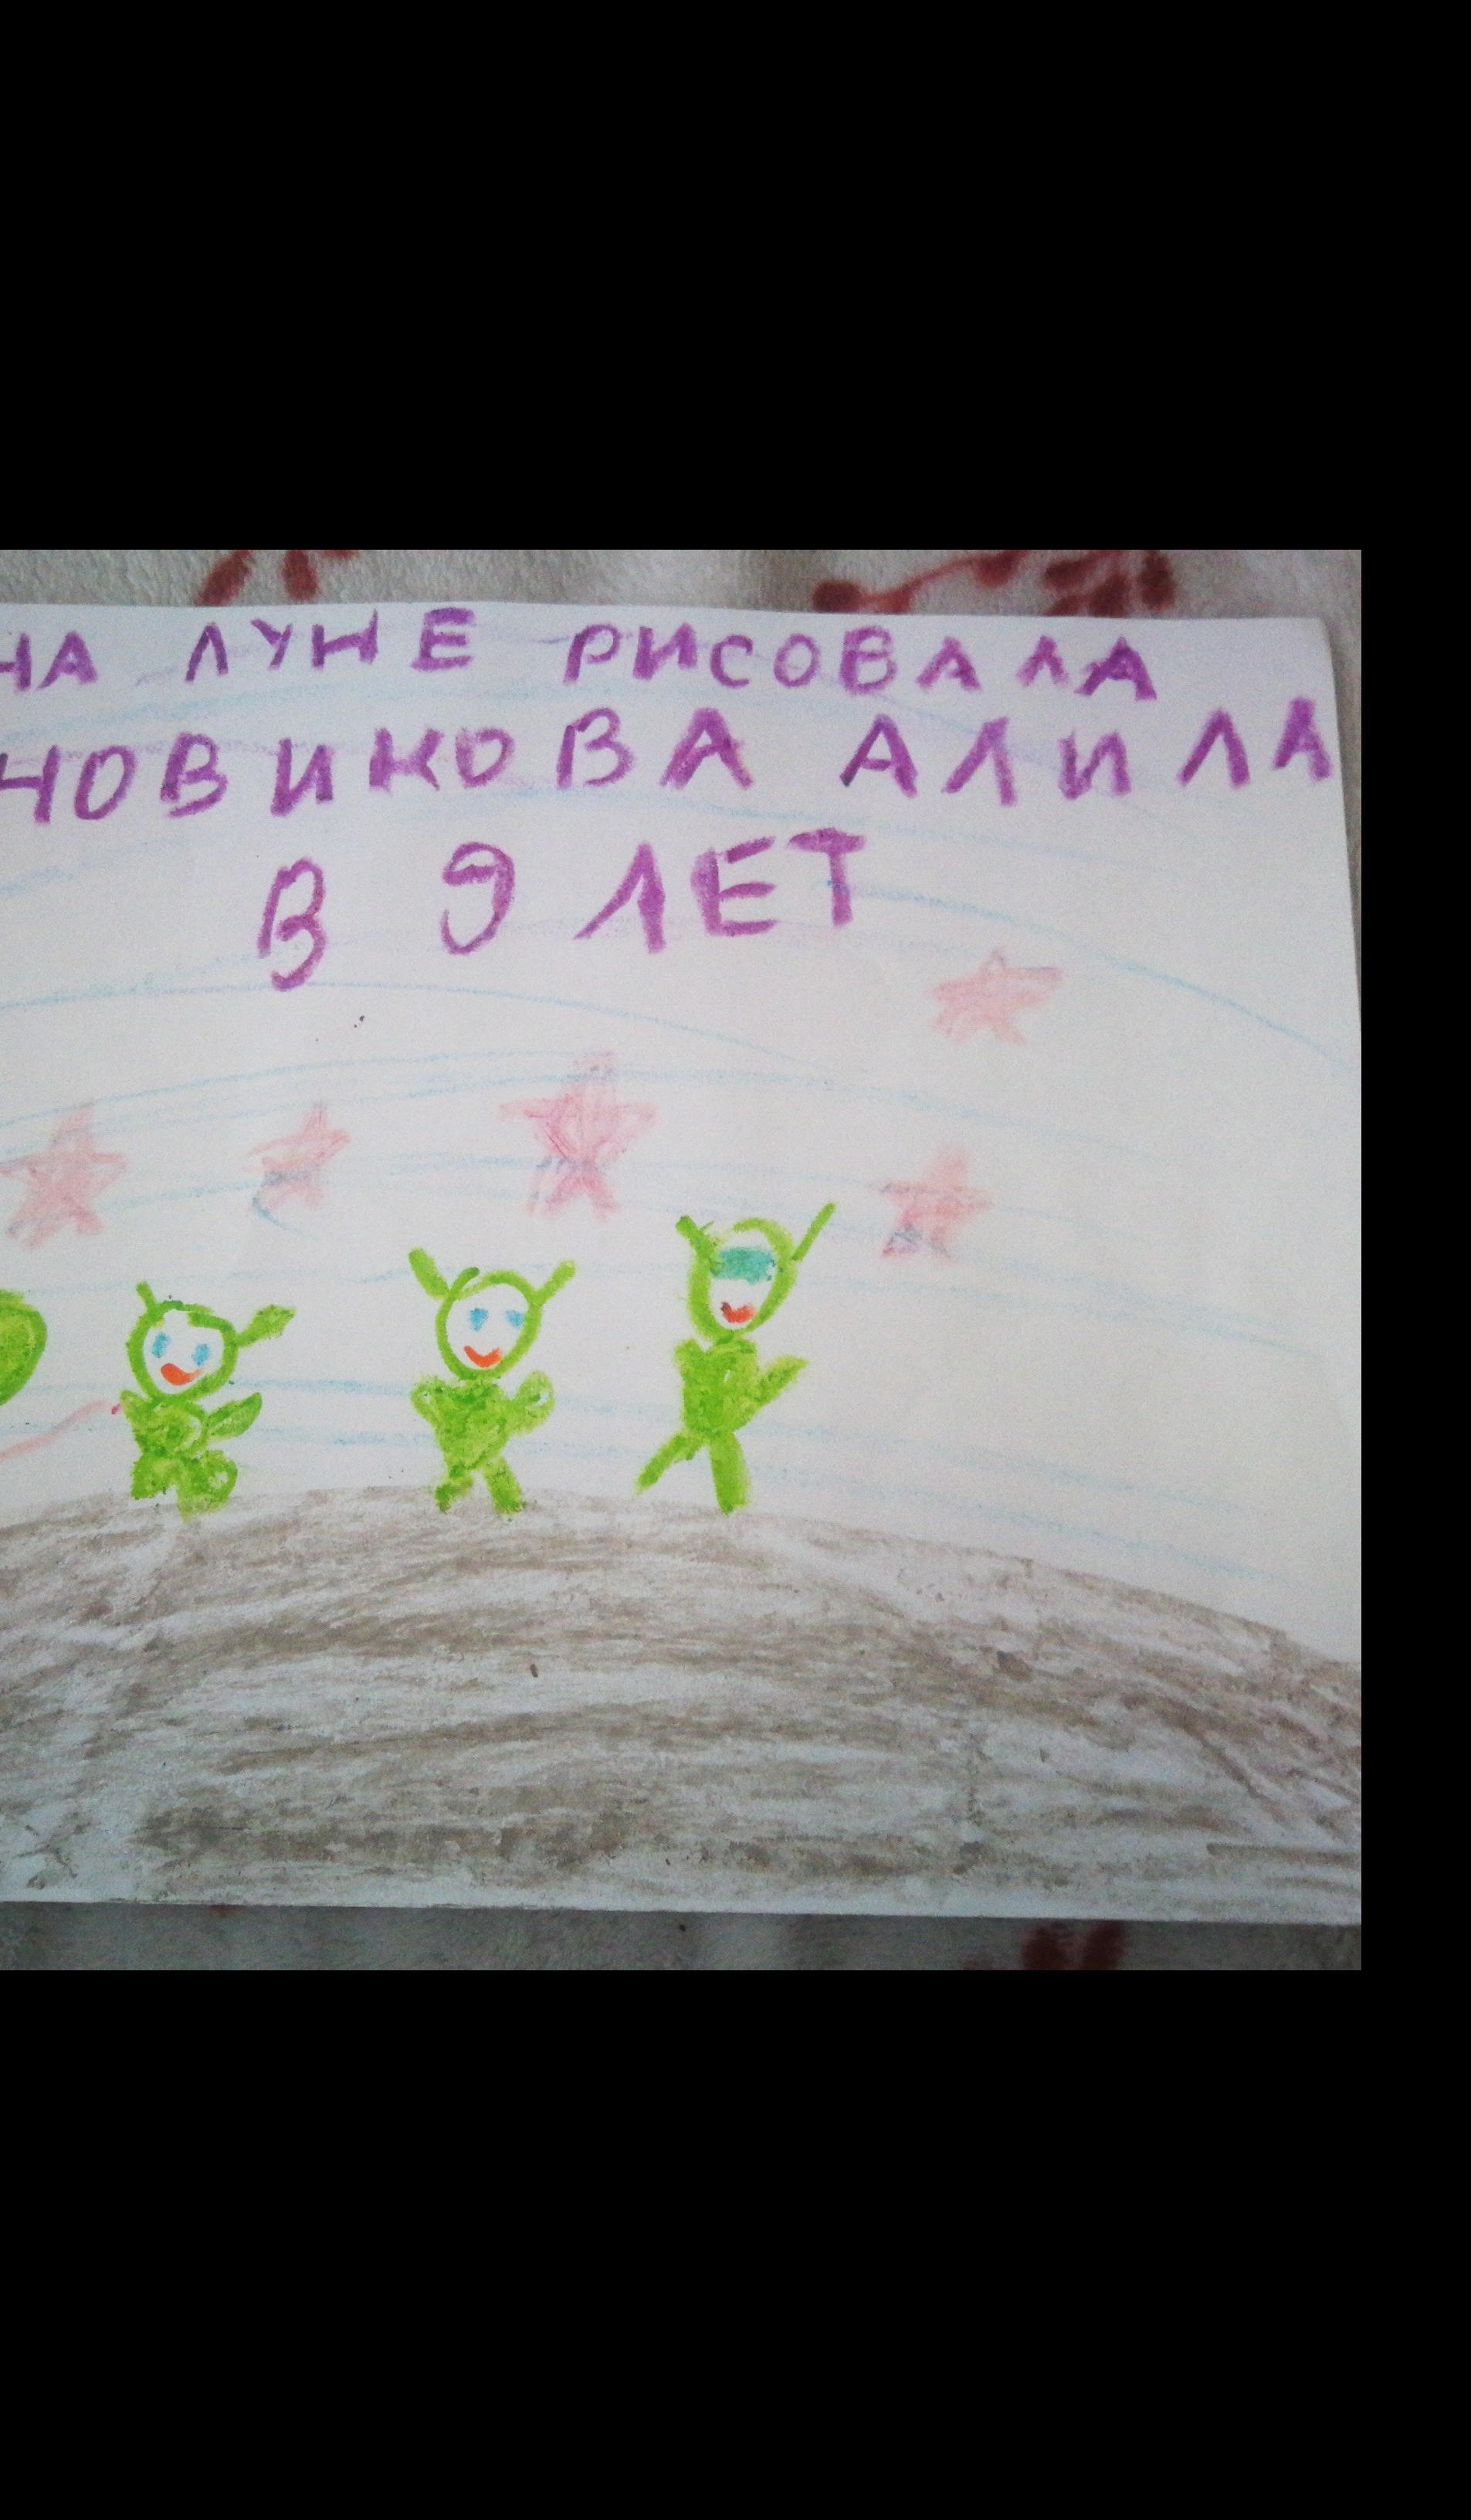 НА ЛУНЕ РИСОВАЛА
НОВИКОВА АЛИЛА
В 9 ЛЕТ